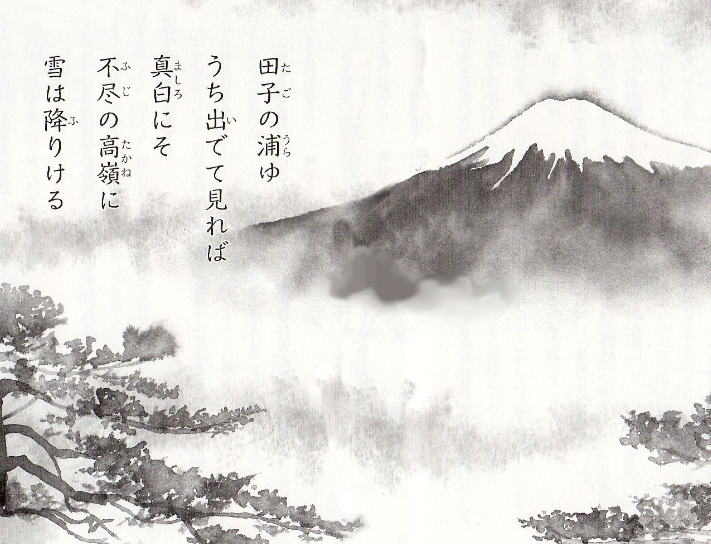 田子の浦ゆ
うち出でて見れば
真白にそ
不尽の高嶺に
雪は降りける